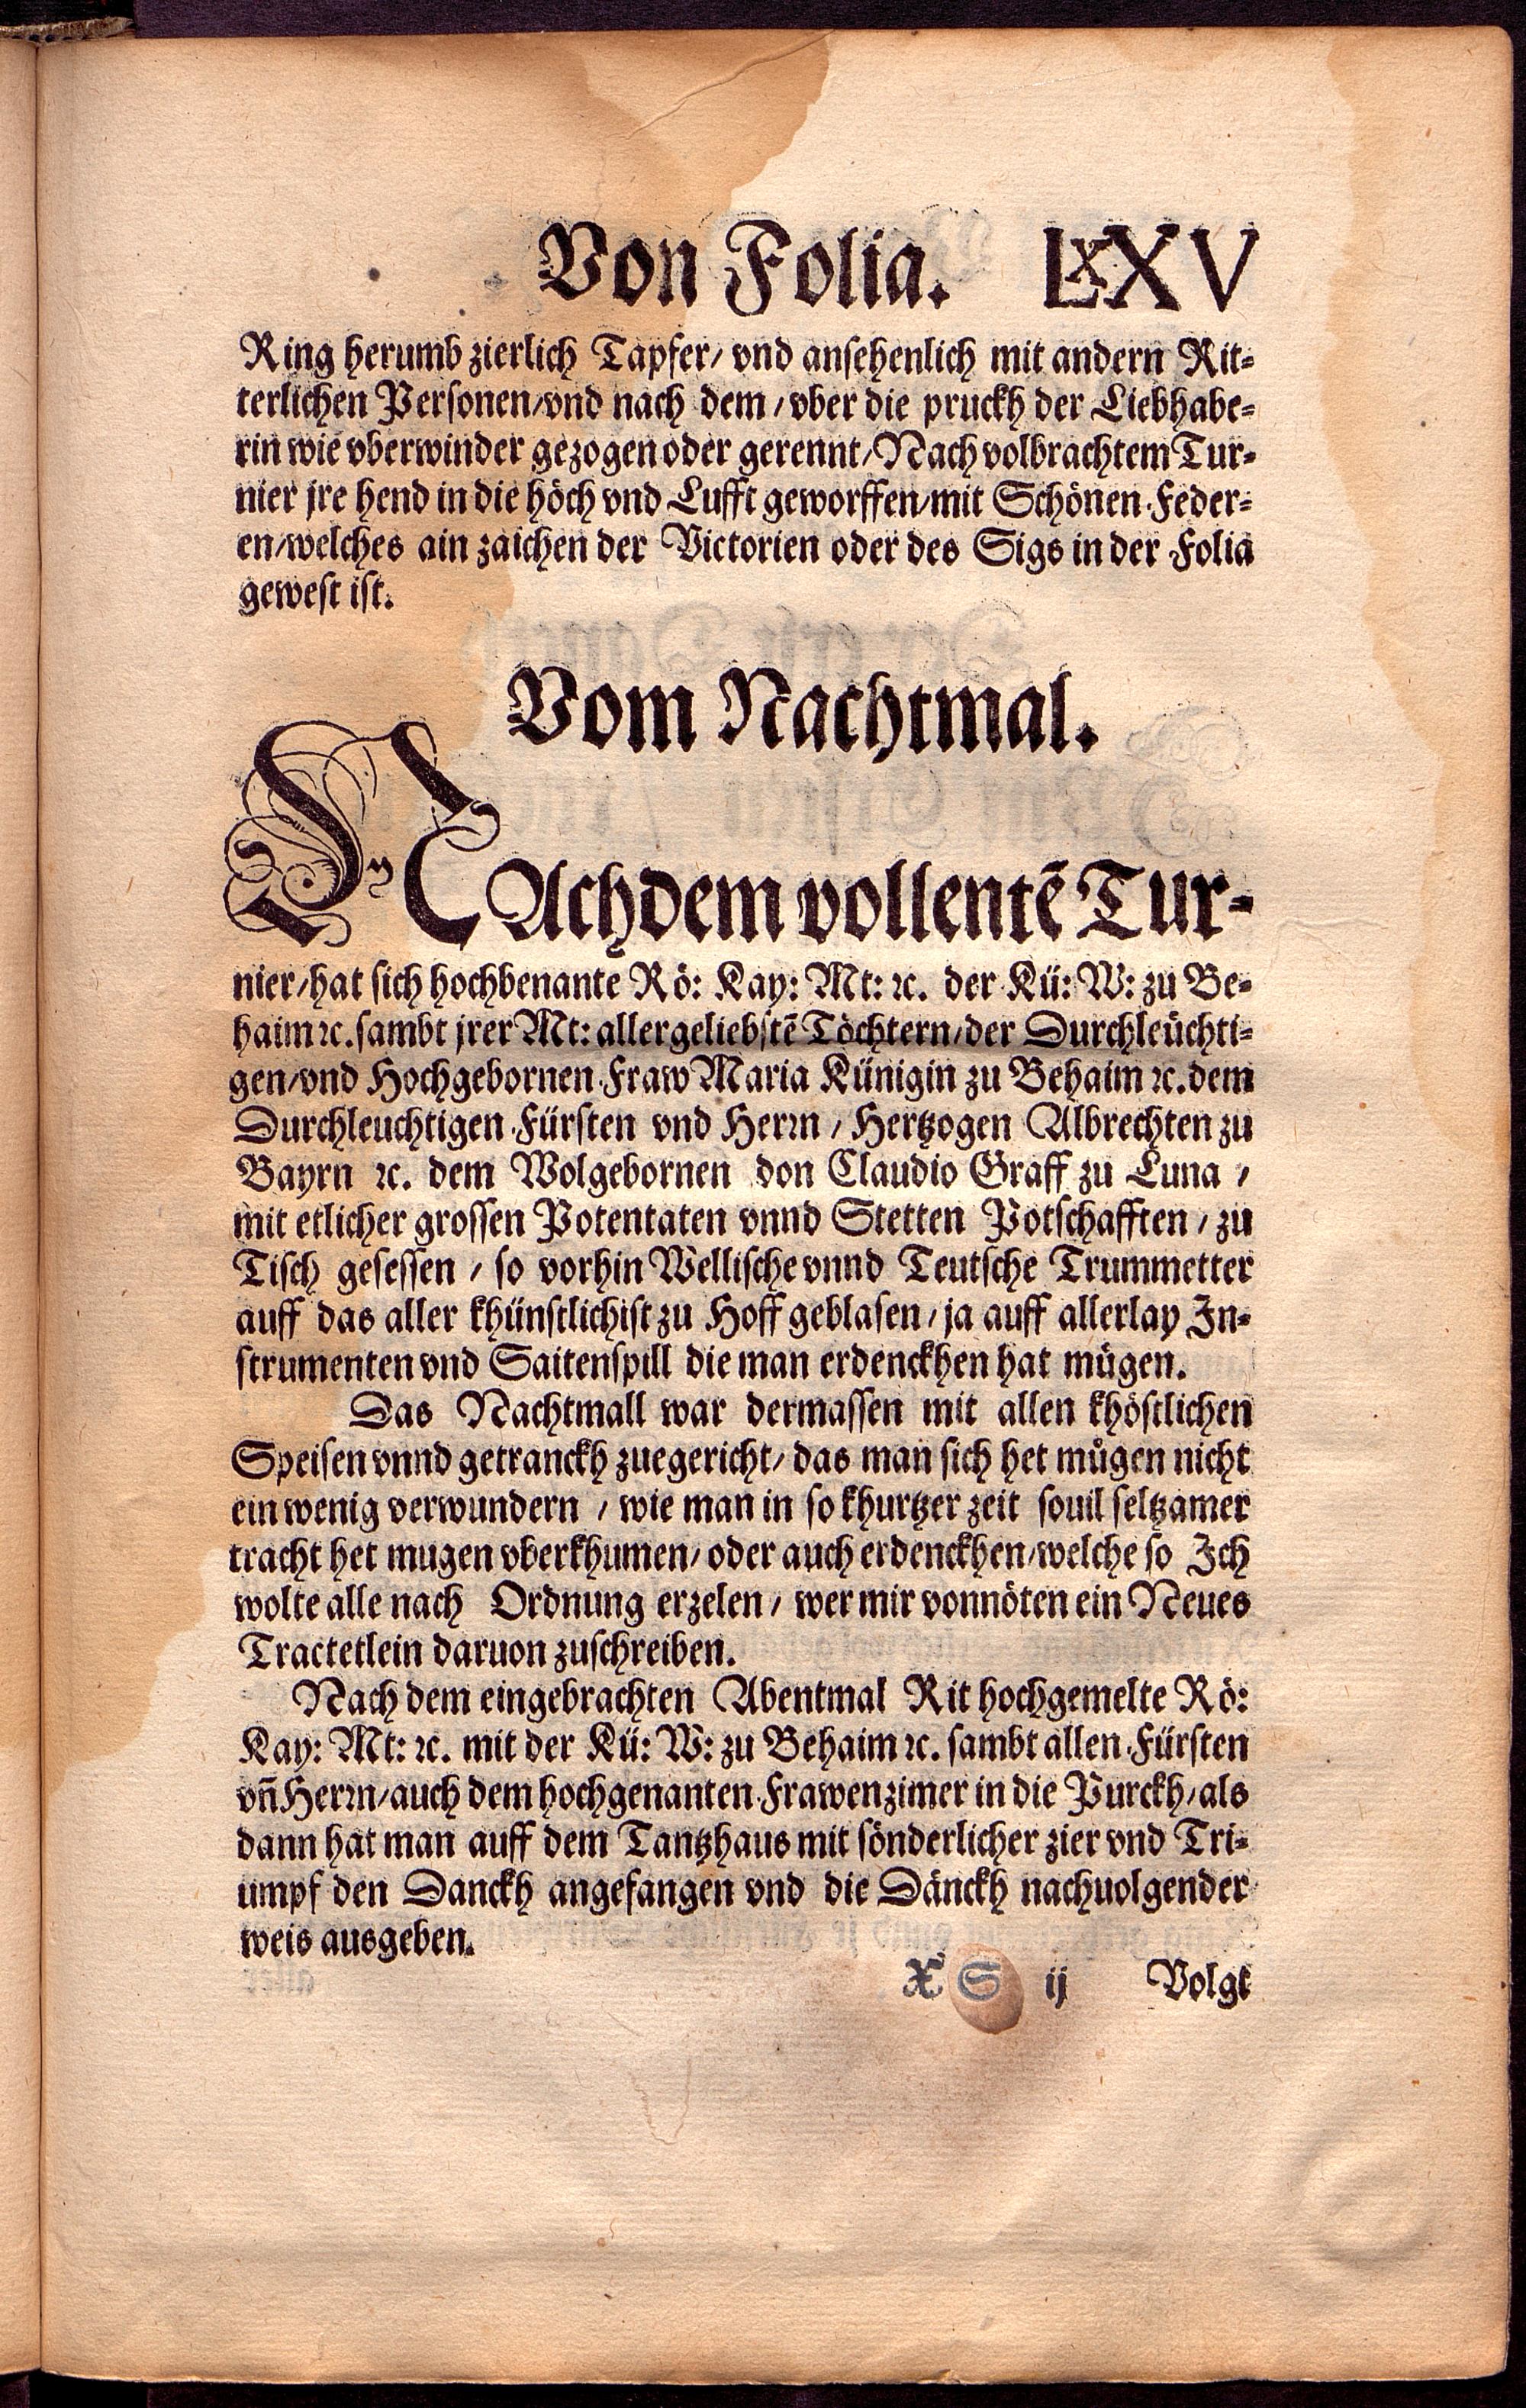 Von Folia. LXXV
Ring herumb zierlich Tapfer/ vnd ansehenlich mit andern Rit⸗
terlichen Personen/vnd nach dem / vber die pruckh der Liebhabe⸗
rin wie vberwinder gezogen oder gerennt/ Nach volbrachtem Tur⸗
nier jre hend in die höch vnd Lufft geworffen/mit Schönen Feder⸗
en/welches ain zaichen der Victorien oder des Sigs in der Folia
gewest ist.
Vom Nachtmal.
NAchdem vollentē Tur⸗
nier/hat sich hochbenante Rö: Kay: Mt: ꝛc. der Kü: W: zu Be⸗
haim ꝛc. sambt jrer Mt: allergeliebstē Töchtern/der Durchleüchti⸗
gen/vnd Hochgebornen Fraw Maria Künigin zu Behaim ꝛc. dem
Durchleuchtigen Fürsten vnd Herrn / Hertzogen Albrechten zu
Bayrn ꝛc. dem Wolgebornen don Claudio Graff zu Luna /
mit etlicher grossen Potentaten vnnd Stetten Potschafften / zu
Tisch gesessen / so vorhin Wellische vnnd Teutsche Trummetter
auff das aller khünstlichist zu Hoff geblasen / ja auff allerlay In⸗
strumenten vnd Saitenspill die man erdenckhen hat mügen.
Das Nachtmall war dermassen mit allen khöstlichen
Speisen vnnd getranckh zuegericht/ das man sich het můgen nicht
ein wenig verwundern / wie man in so khurtzer zeit souil seltzamer
tracht het mugen vberkhumen/ oder auch erdenckhen/welche so Ich
wolte alle nach Ordnung erzelen / wer mir vonnöten ein Neues
Tractetlein daruon zuschreiben.
Nach dem eingebrachten Abentmal Rit hochgemelte Rö:
Kay: Mt: ꝛc. mit der Kü: W: zu Behaim ꝛc. sambt allen Fürsten
vn̄ Herrn/auch dem hochgenanten Frawenzimer in die Purckh/als
dann hat man auff dem Tantzhaus mit sönderlicher zier vnd Tri⸗
umpf den Danckh angefangen vnd die Dänckh nachuolgender
weis ausgeben.
X S ij Volgt